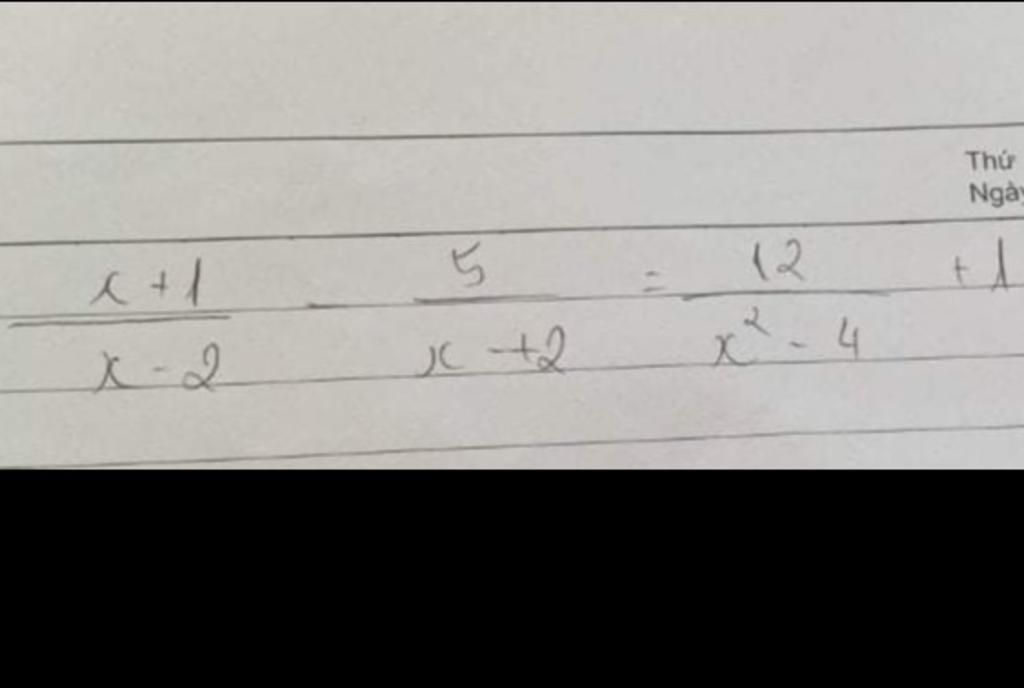 Thứ
Ngày
x+1 / x-2 - 5 / x+2 = 12 / x² - 4 + 1